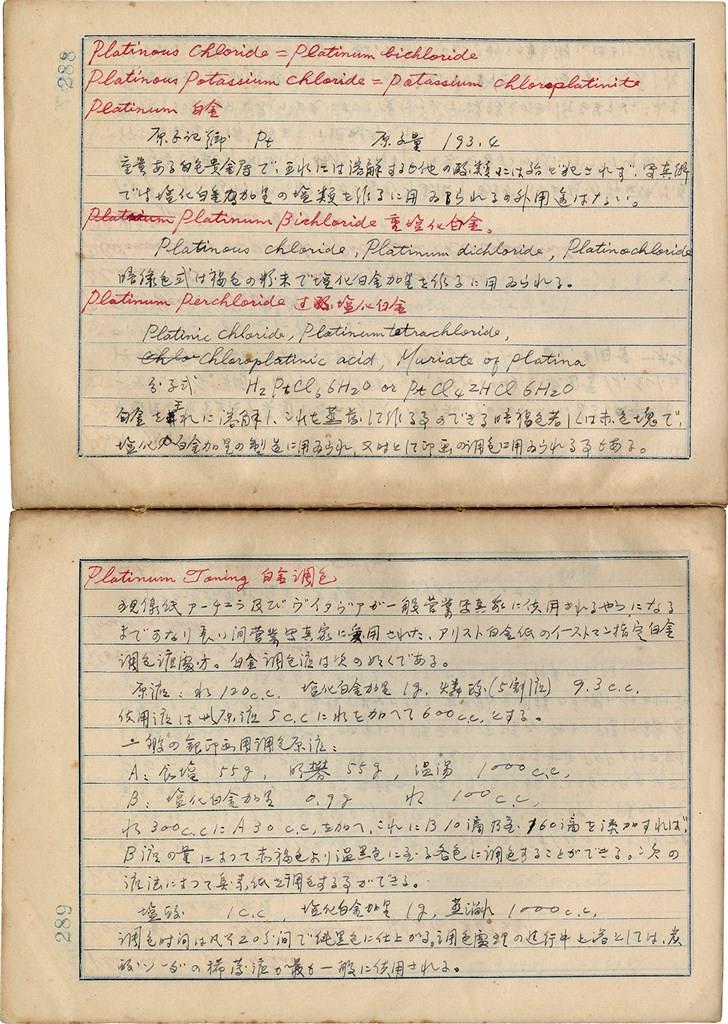 288
Platinous Chloride = Platinum bichloride
Platinous Potassium chloride = potassium chloroplatinite
Platinum 白金
原子記号 Pt 原子量 193.4
重量ある白色貴金属で、王水には溶解するも他の酸類には殆ど犯されず、写真術
では塩化白金加里の塩類を作るに用ゐられるの外用途はない。
Platinum Platinum Bichloride 重塩化白金。
Platinous chloride, Platinum dichloride, Platinochloride
暗緑色或は褐色の粉末で塩化白金加里を作るに用ゐられる。
Platinum Perchloride 过酸塩化白金
Platinic chloride, Platinum tetrachloride,
Chlo Chloroplatinic acid, Muriate of platina
分子式 H2 PtCl6 6H2O or PtCl4 2HCl 6H2O
白金を王水に溶解し、これを蒸発して作る事のできる暗褐色若しくは赤色塊で、
塩化白金加里の製造に用ゐられ、又時として印画の調色に用ゐられる事もある。
Platinum Toning 白金調色
現像紙アーチュラ及びヴイタヴアが一般営業写真家に使用されるやうになる
まですなり長い间営業写真家に愛用された、アリスト白金紙のイーストマン指定白金
調色液處方。白金調色液は次の如くである。
原液: 水 120 c.c. 塩化白金加里 1g. 燐酸(5割液) 9.3 c.c.
使用液は此原液 5 c.c. に水を加へて 600 c.c. とする。
一般の銀印画用調色原液:
A: 食塩 55g, 明礬 55g, 温湯 1000 c.c,
B: 塩化白金加里 0.9g 水 100 c.c,
水 300 c.c. に A 30 c.c. を加へ、これに B 10 滴乃至 160 滴を添加すれば、
B液の量によつて赤褐色より温黒色に至る各色に調色することができる。次の
液法によつて鶏卵紙を調色する事ができる。
塩酸 1 c.c, 塩化白金加里 1g, 蒸溜水 1000 c.c,
調色時间は凡て20分间で純黒色に仕上がる。調色處理の進行中止浴としては、炭
酸ソーダの稀薄液が最も一般に使用される。
289